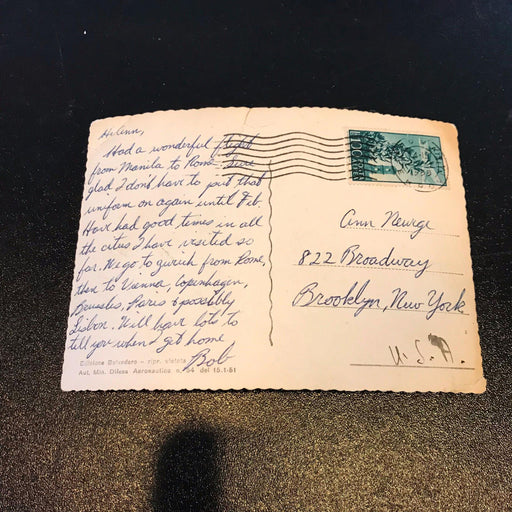 Hi Ann,
Had a wonderful flight
from Manila to Rome. Sure
glad I don't have to put that
uniform on again until Feb.
Have had good times in all
the cities I have visited so
far. We go to Zurich from Rome,
then to Vienna, Copenhagen,
Brussels, Paris & possibly
Lisbon. Will have lots to
tell you when I get home
Bob
Edizione Belvedere - ripr. vietata
Aut. Min. Difesa Aeronautica n. 54 del 15.1.51
Ann Newge
822 Broadway
Brooklyn, New York
U.S.A.